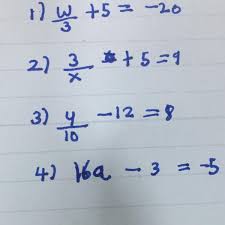 1) w/3 + 5 = -20
2) 3/x + 5 = 9
3) y/10 - 12 = 8
4) 16a - 3 = -5